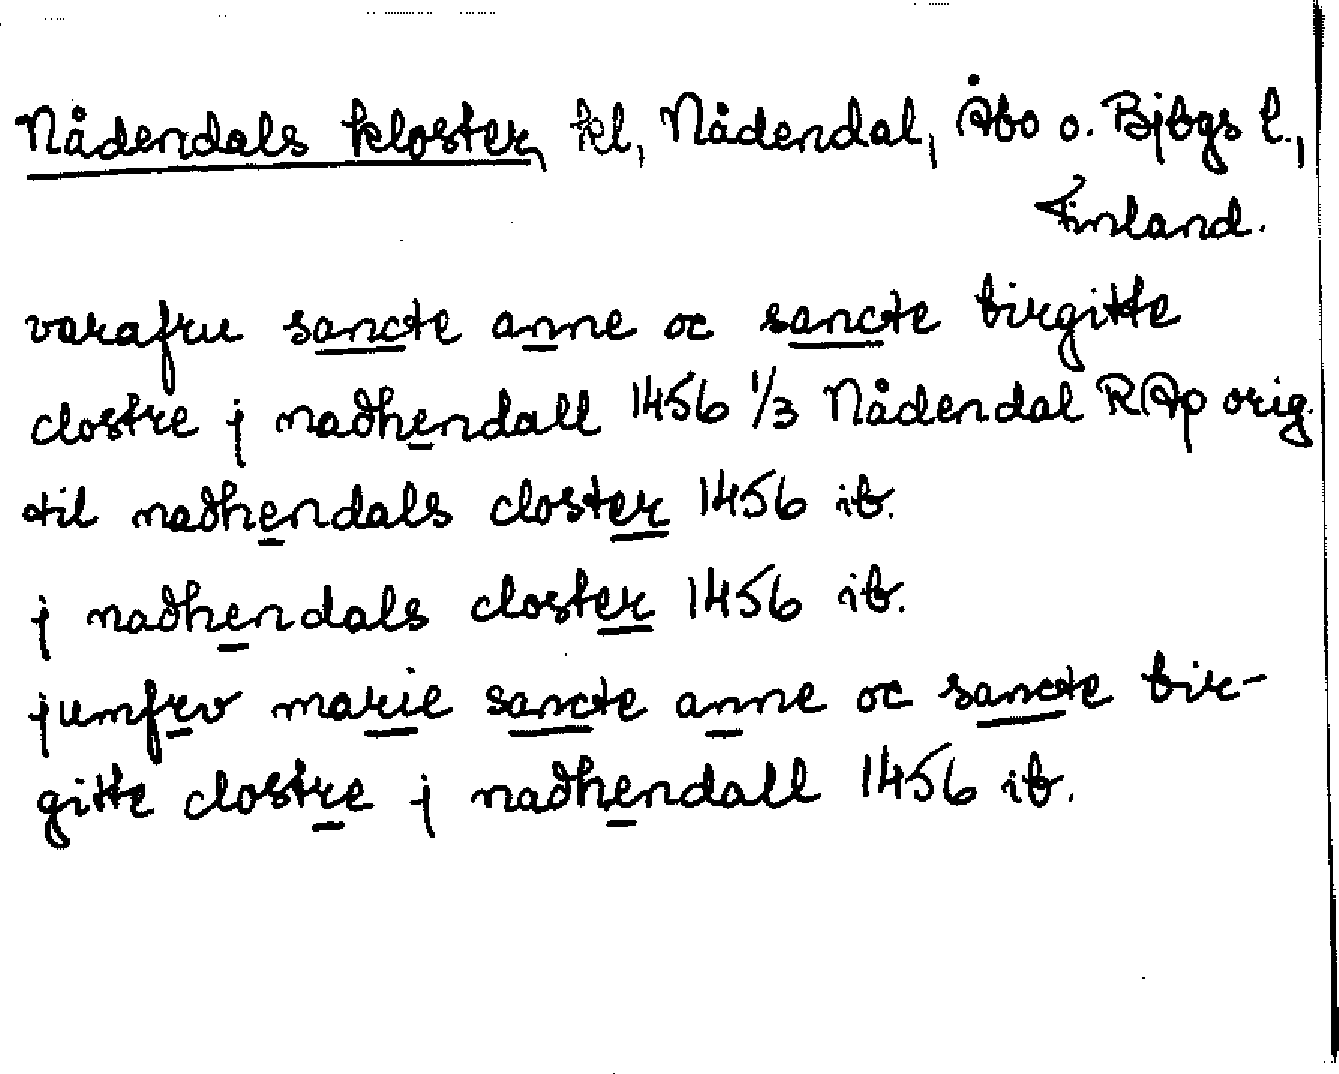 Nådendals kloster, kl, Nådendal, Åbo o. Bjbgs l.,
Finland.
varafru sancte anne oc sancte birgitte
clostre j nadhendall 1456 1/3 Nådendal RAp orig.
til nadhendals closter 1456 ib.
j nadhendals closter 1456 ib.
jumfrv marie sancte anne oc sancte bir-
gitte clostre j nadhendall 1456 ib.